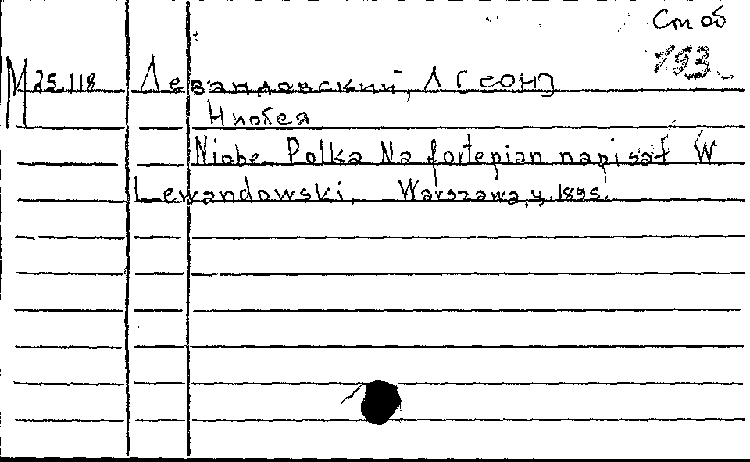 Ст об
193
М 25.118 Левандовский, Л [еон]
Ниобея
Niobe. Polka Na fortepian napisał W
Lewandowski. Warszawa, 1895.